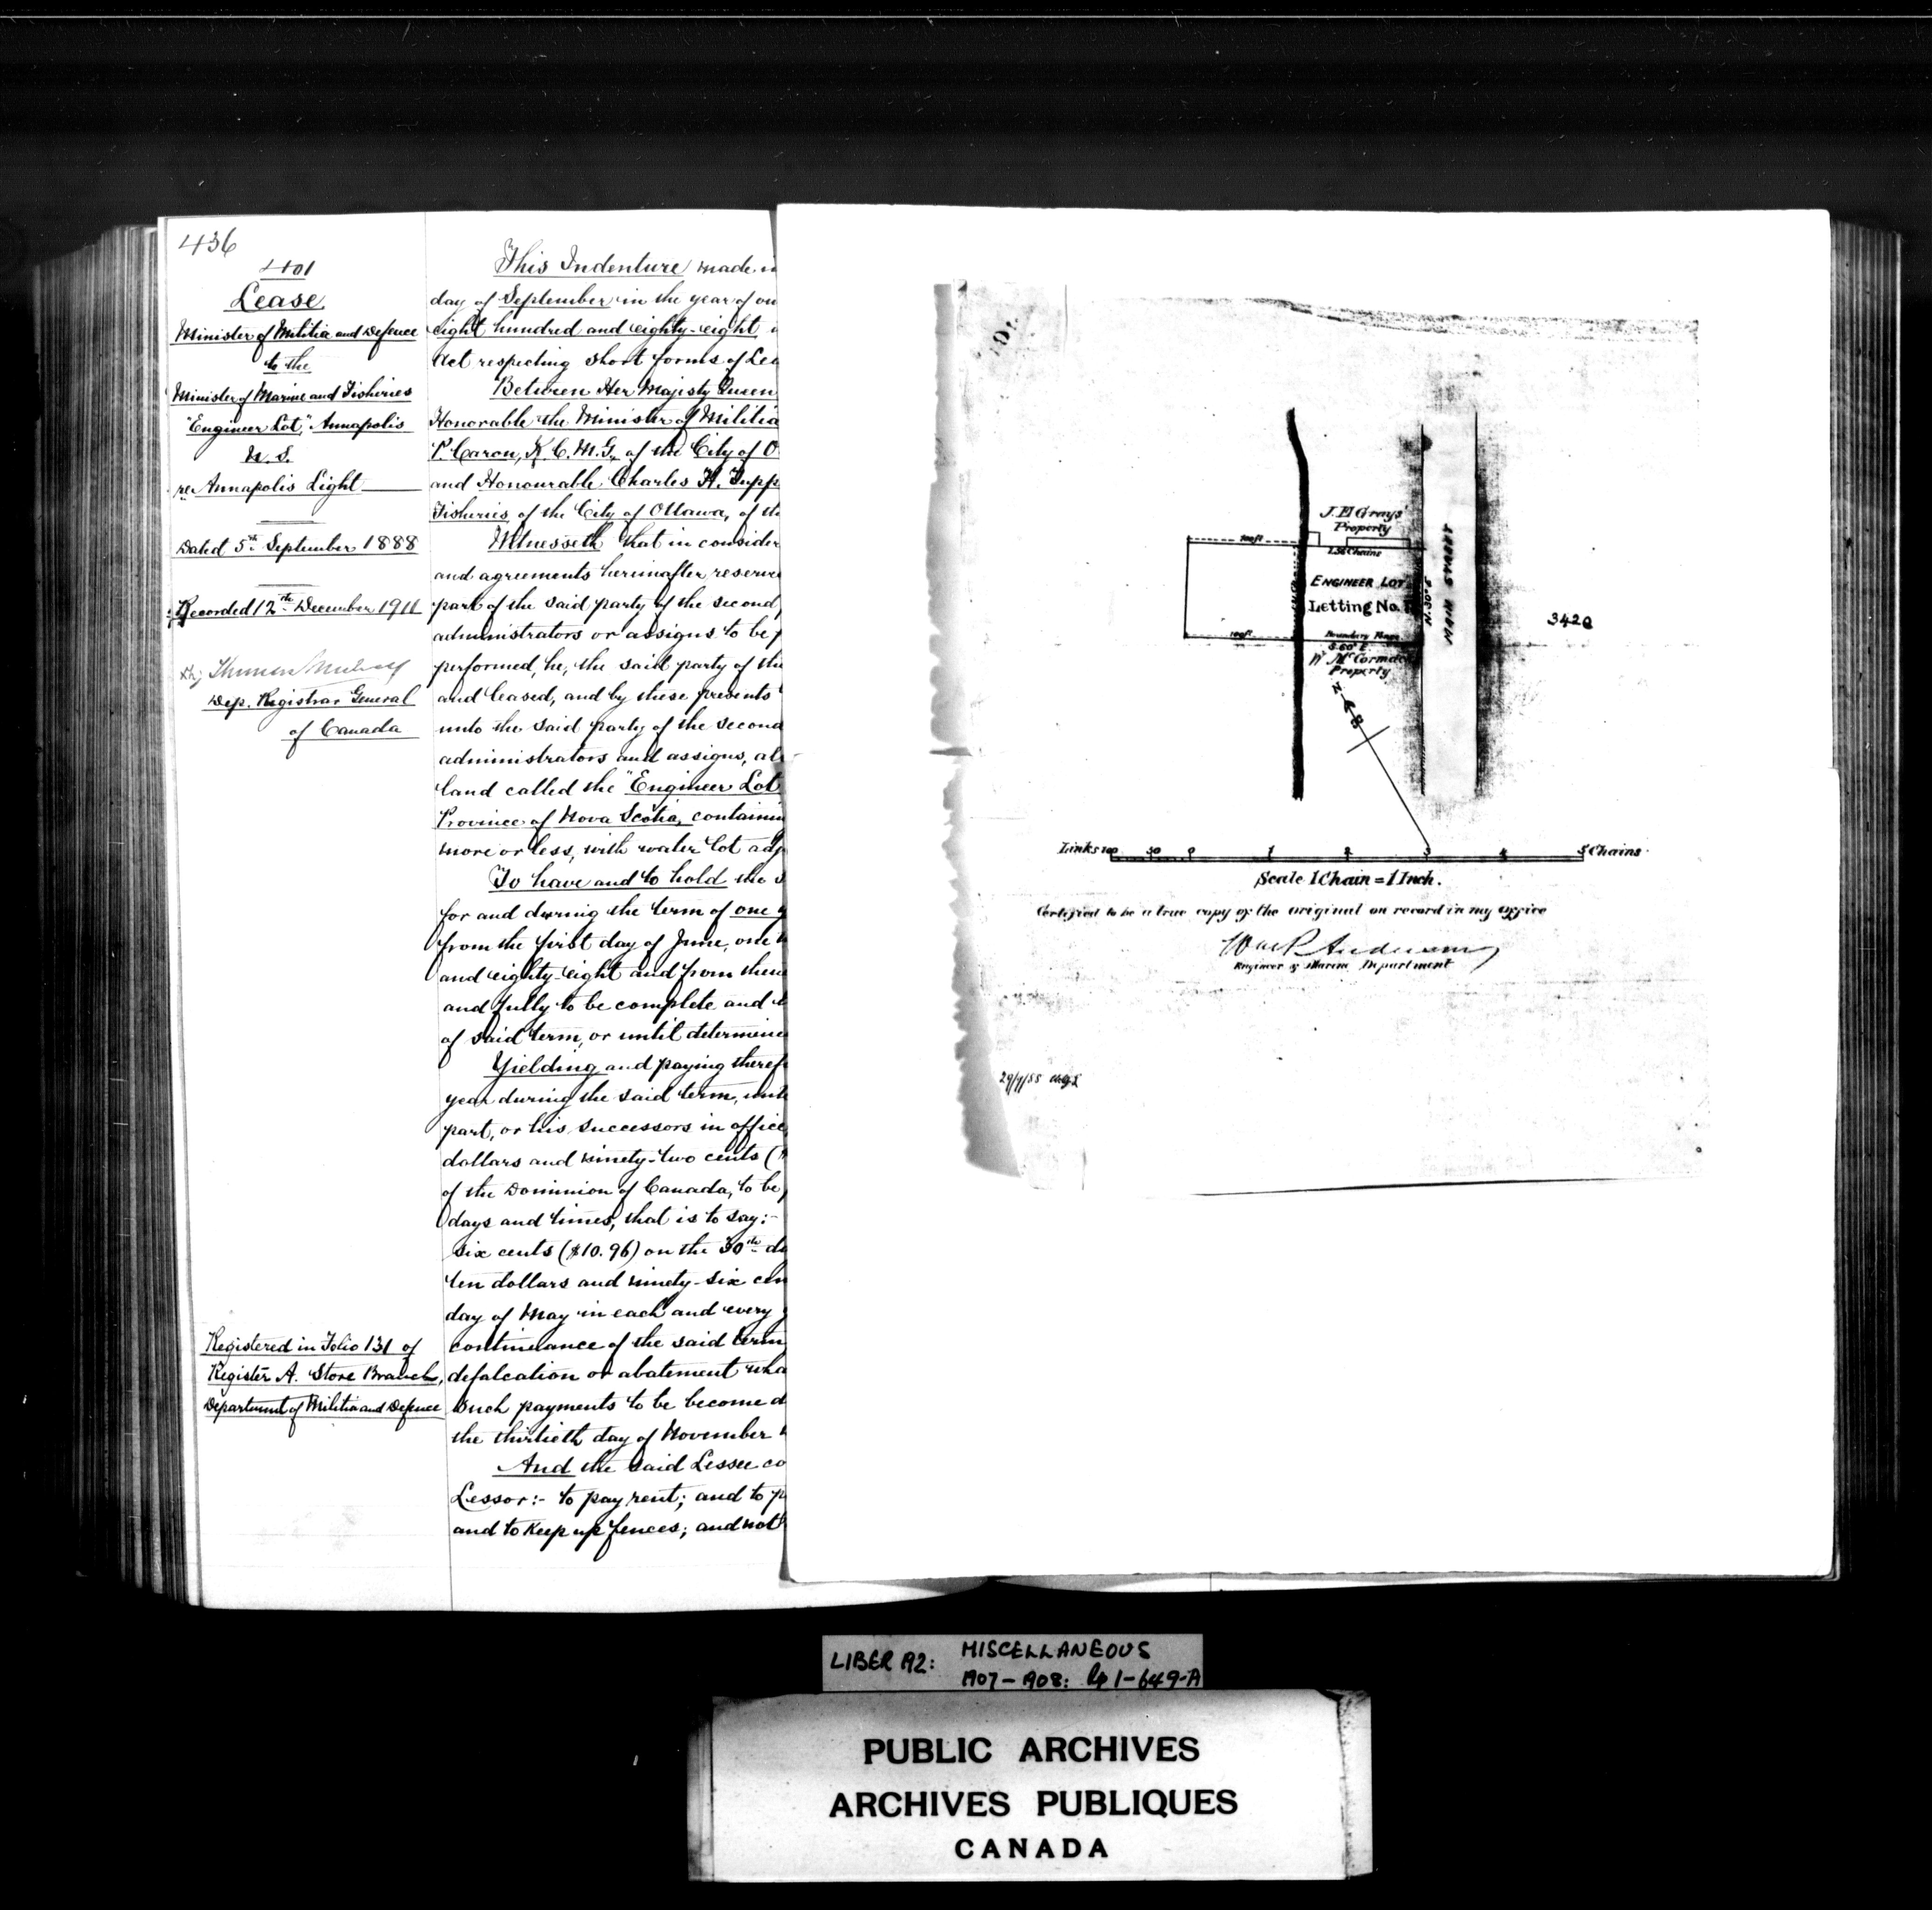 436
401
Lease
Minister of Militia and Defence
to the
Minister of Marine and Fisheries
"Engineer Lot", Annapolis
N. S.
re Annapolis Light
Dated 5th September 1888
Recorded 12th December 1911
Dep. Registrar General
of Canada
Registered in Folio 131 of
Register A. Store Branch,
Department of Militia and Defence
This Indenture made
day of September in the year of
eight hundred and eighty-eight
Act respecting short forms of
Between Her Majesty Queen
Honorable the Minister of Militia
P. Caron, K.C.M.G., of the City of O
and Honourable Charles H. Tupp
Fisheries of the City of Ottawa, of
Witnesseth that in consider
and agreements hereinafter reserve
part of the said party of the second
administrators or assigns to be
performed, he, the said party of the
and leased, and by these presents
unto the said party of the second
administrators and assigns, al
land called the "Engineer Lot
Province of Nova Scotia, containin
more or less, with water lot adj
To have and to hold the s
for and during the term of one y
from the first day of June, one
and eighty-eight and from then
and fully to be complete and
of said term, or until determine
Yielding and paying theref
year during the said term, unto
part, or his successors in office
dollars and ninety-two cents (
of the Dominion of Canada, to be
days and times, that is to say:-
six cents ($10.96) on the 30th da
ten dollars and ninety-six cen
day of May in each and every y
continuance of the said term
defalcation or abatement wha
such payments to be become d
the thirtieth day of November
And the said Lessee co
Lessor:- to pay rent; and to p
and to keep up fences; and not
101
J. H Grays'
Property
100ft
1.36 Chains
ENGINEER LOT
Letting No.
N. 30° E
MAIN STREET
3420
100ft
Boundary Fence
S 60° E
Wm McCormac
Property
Links 100 50 0 1 2 3 4 5 Chains
Scale 1 Chain = 1 Inch.
Certified to be a true copy of the original on record in my office
Wm P. Anderson
Engineer of Marine Department
LIBER 192: MISCELLANEOUS
1907-1908: 1-649-A
PUBLIC ARCHIVES
ARCHIVES PUBLIQUES
CANADA